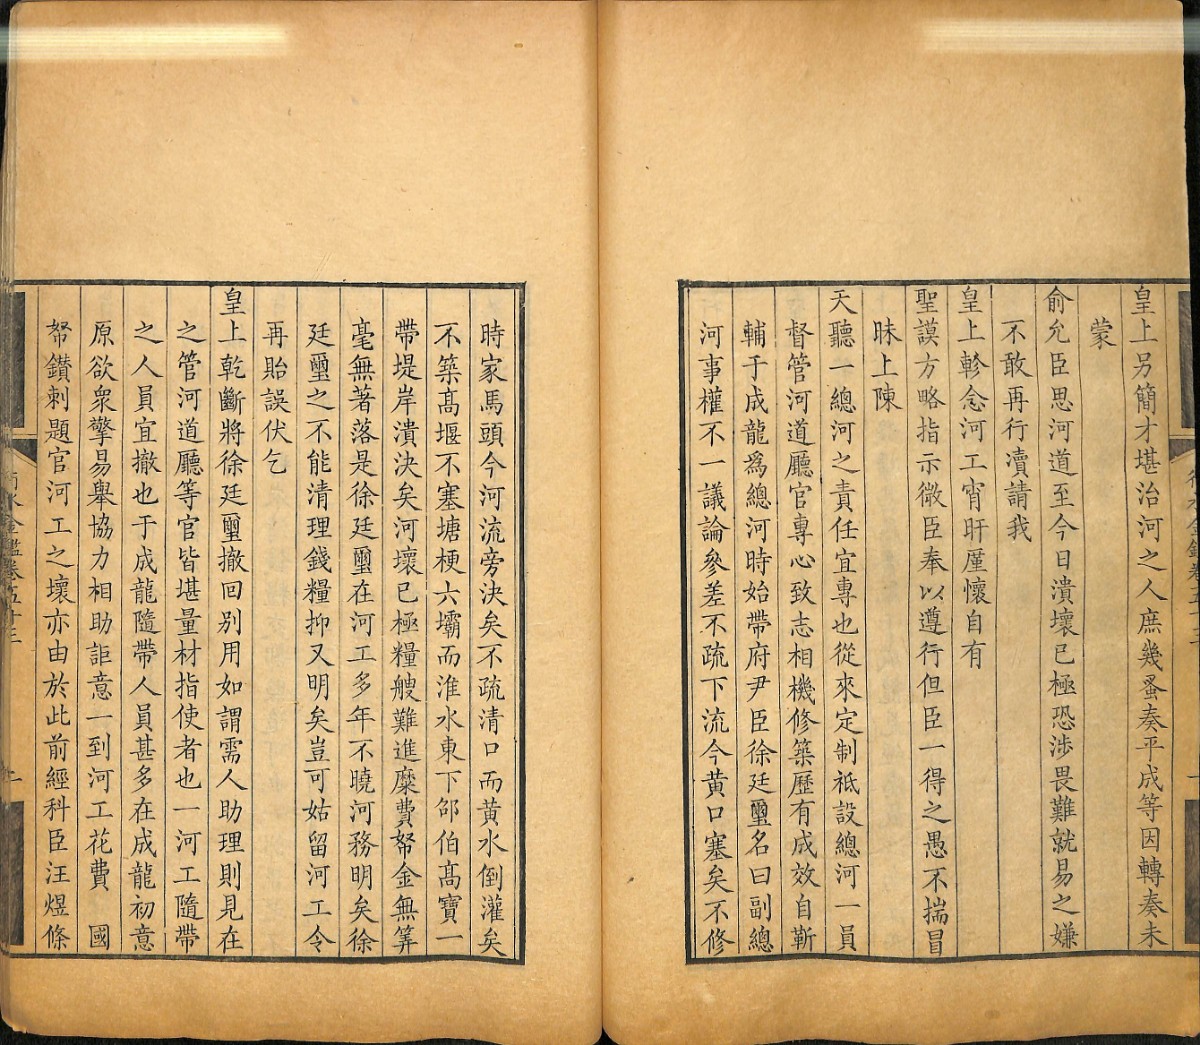 皇上另簡才堪治河之人庶幾蚤奏平成等因轉奏未
蒙
俞允臣思河道至今日潰壞已極恐涉畏難就易之嫌
不敢再行瀆請我
皇上軫念河工宵旰厪懷自有
聖謨方略指示微臣奉以遵行但臣一得之愚不揣冒
昧上陳
天聽一總河之責任宜專也從來定制祗設總河一員
督管河道廳官專心致志相機修築歷有成效自靳
輔于成龍爲總河時始帶府尹臣徐廷璽名曰副總
河事權不一議論參差不疏下流今黄口塞矣不修
時家馬頭今河流旁決矣不疏清口而黄水倒灌矣
不築髙堰不塞塘梗六壩而淮水東下邵伯髙寶一
帶堤岸潰決矣河壞已極糧艘難進糜費帑金無筭
毫無著落是徐廷璽在河工多年不曉河務明矣徐
廷璽之不能清理錢糧抑又明矣豈可姑留河工令
再貽誤伏乞
皇上乾斷將徐廷璽撤回别用如謂需人助理則見在
之管河道廳等官皆堪量材指使者也一河工隨帶
之人員宜撤也于成龍隨帶人員甚多在成龍初意
原欲衆擎易舉協力相助詎意一到河工花費 國
帑鑽刺題官河工之壞亦由於此前經科臣汪煜條